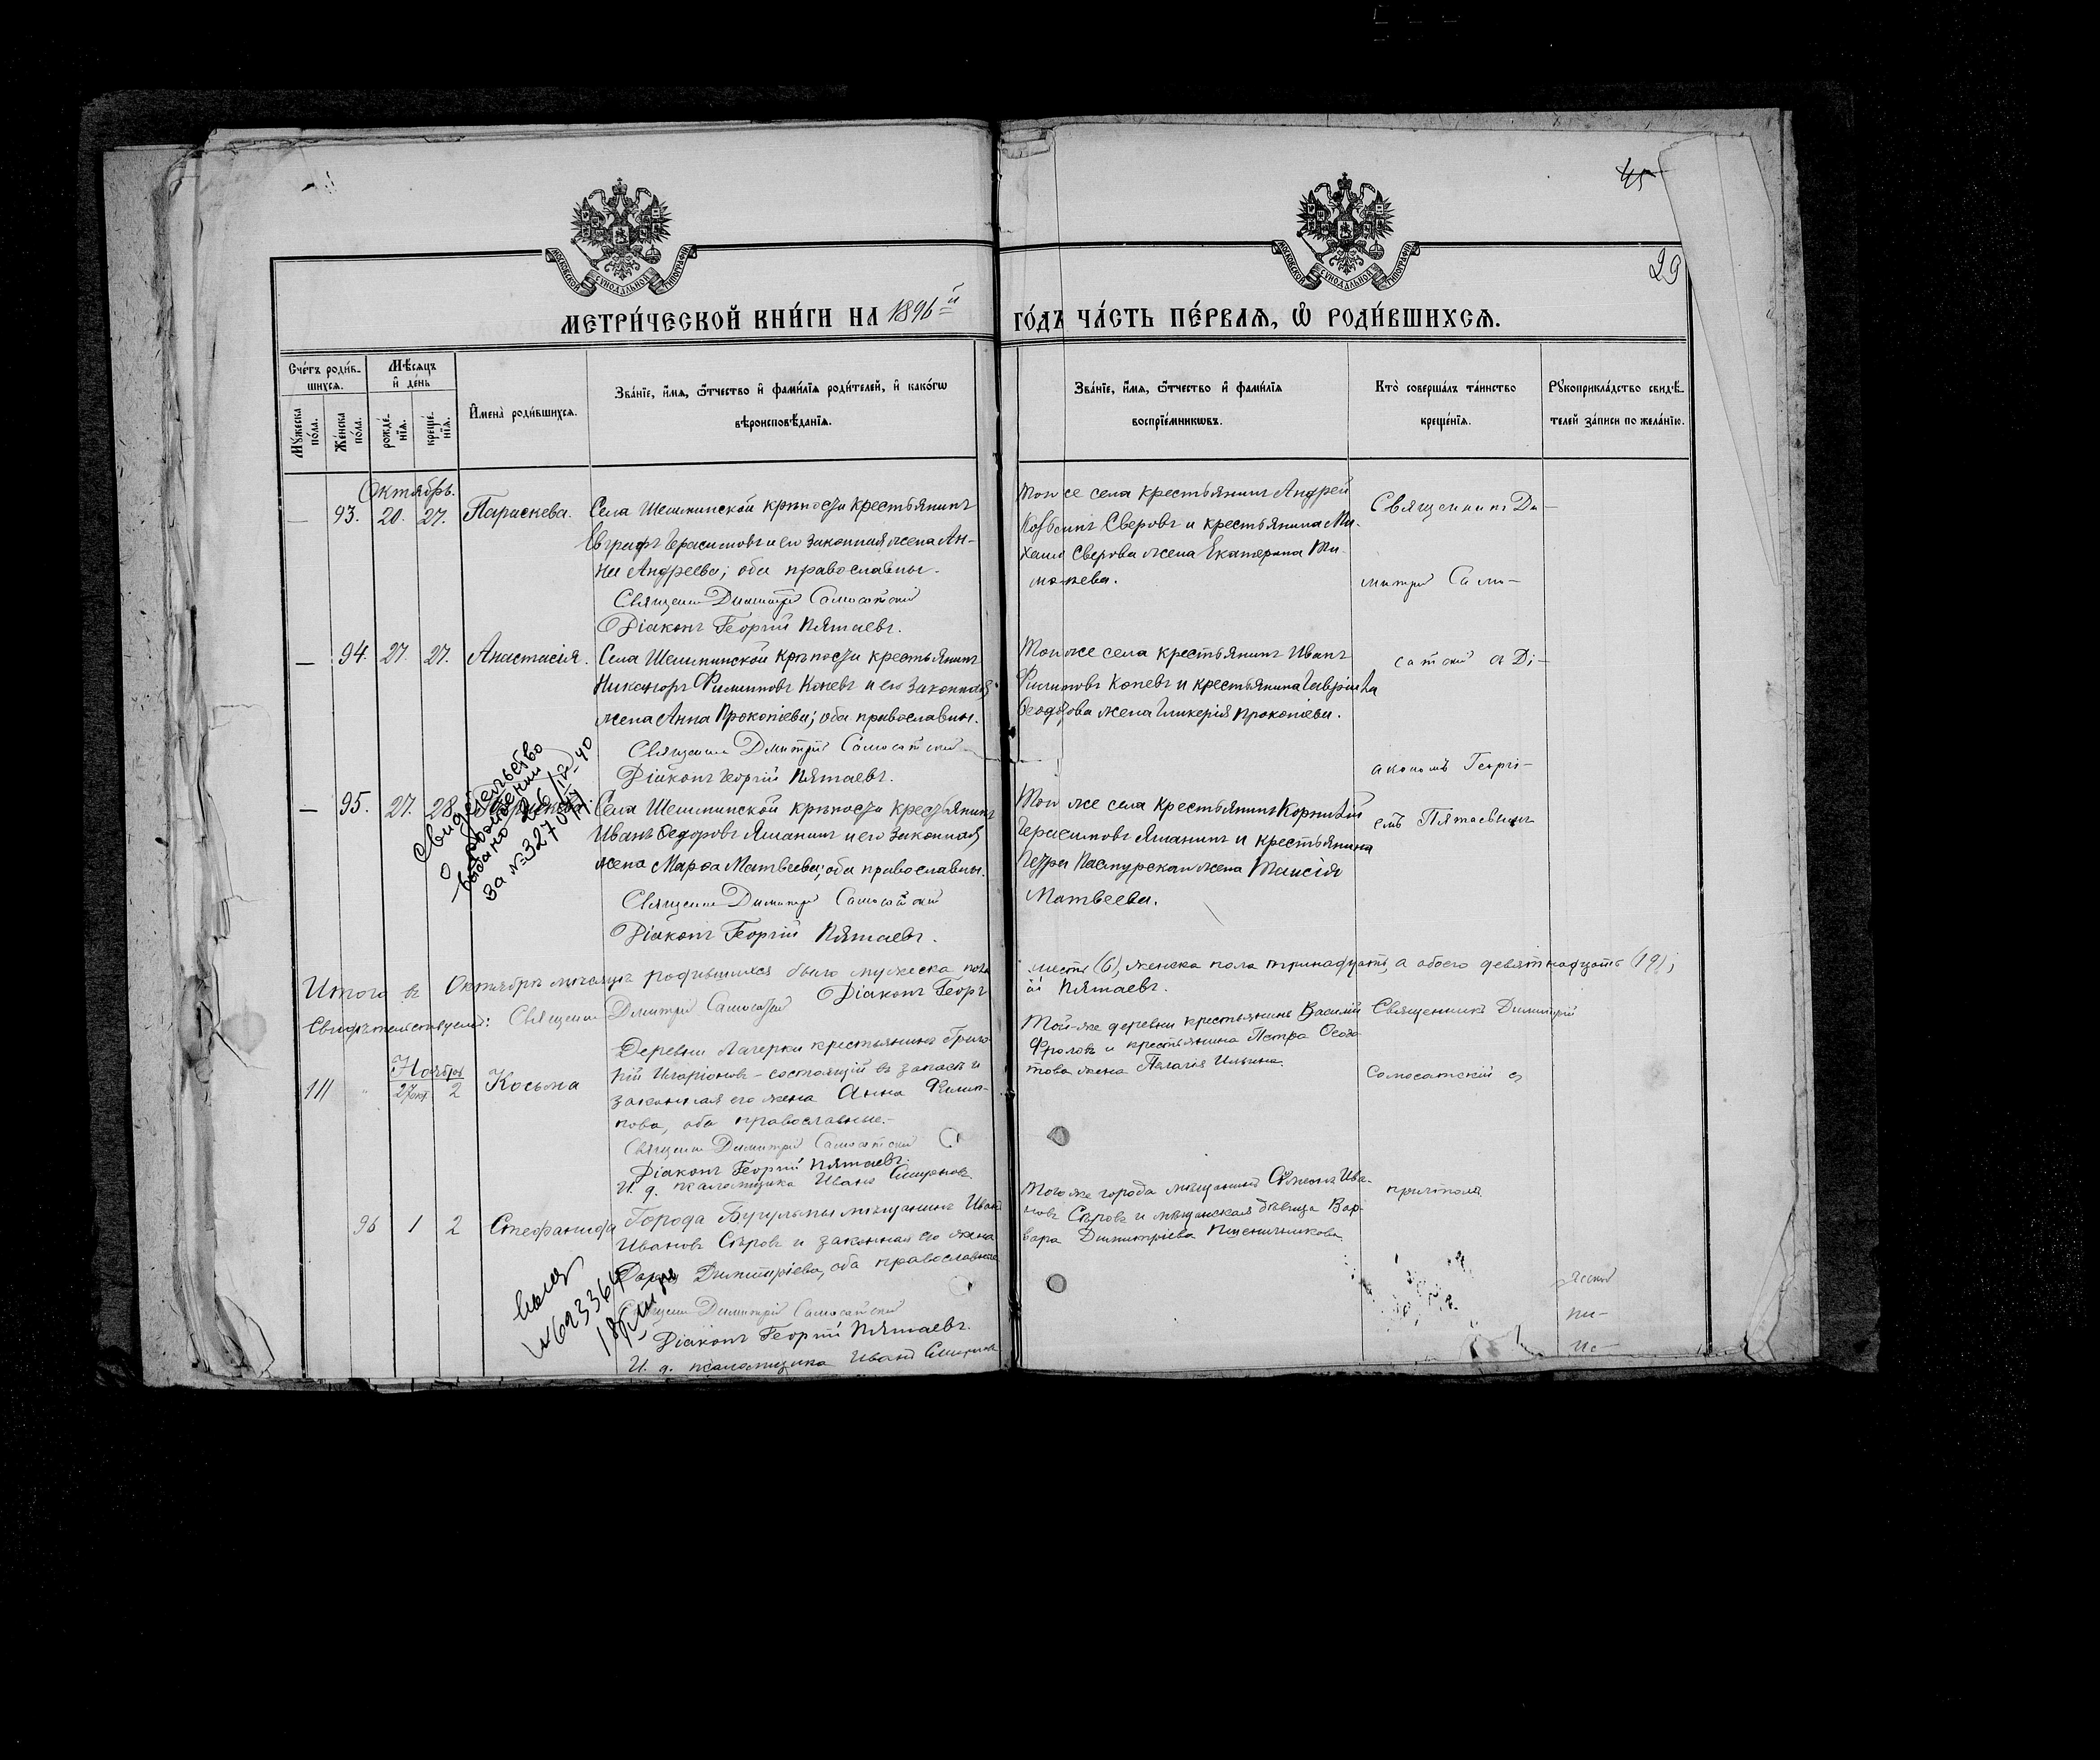 45
29
МОСКОВСКОЙ СѴНОДАЛЬНОЙ ТИПОГРАФІИ
МОСКОВСКОЙ СѴНОДАЛЬНОЙ ТИПОГРАФІИ
МЕТРИ́ЧЕСКОЙ КНИ́ГИ НА 1896й
ГО́ДЪ ЧА́СТЬ ПЕ́РВАѦ, Ѽ РОДИ́ВШИХСѦ.
Сче́тъ роди́в-
шихсѧ.
Мꙋжеска по́ла.
Же́нска пола.
Мѣ́сѧцъ
и҆ де́нь
рожде́-
нїѧ.
креще́-
нїѧ.
И҆мена̀ роди́вшихсѧ.
Зва́нїе, и҆́мѧ, ѻ҆́тчество и҆ фами́лїѧ роди́телей, и҆ како́гѡ
вѣроисповѣ́данїѧ.
Зва́нїе, и҆́мѧ, ѻ҆́тчество и҆ фами́лїѧ
воспрїе́мникѡвъ.
Кто̀ соверша́лъ та́инство
креще́нїѧ.
Рꙋкоприкла́дство свидѣ́-
телей за́писи по жела́нїю.
Октябрь.
— 93. 20. 27. Параскева.
Села Шешминской крѣпости крестьянинъ
Евграфъ Герасимовъ и его законная жена Ан-
на Андреева; оба православны.
Священн Димитрій Самосатскій
Діаконъ Георгій Пятаевъ.
Того же села крестьянинъ Андрей
Козьминъ Сверовъ и крестьянина Ми-
хаила Сверова жена Екатерина Ти-
мофеева.
Священникъ Ди-
митрій Само-
— 94. 27. 27. Анастасія.
Села Шешминской крѣпости крестьянинъ
Никаноръ Филиповъ Коневъ и его законная
жена Анна Прокопіева; оба православны.
Священн Димитрій Самосатскій
Діаконъ Георгій Пятаевъ.
Того же села крестьянинъ Иванъ
Филиповъ Коневъ и крестьянина Гавріила
Ѳеодорова жена Гликерія Прокопіева.
сатскій съ Ді-
акономъ Георгі-
— 95. 27. 28.
Свидетельство
о рождении
выдано 26/IX-40
за № 327044
Села Шешминской крѣпости крестьянинъ
Иванъ Ѳедоровъ Яманинъ и его законная
жена Марѳа Матвѣева; оба православны.
Священн Димитрій Самосатскій
Діаконъ Георгій Пятаевъ.
Того же села крестьянинъ Корнилій
Герасимовъ Яманинъ и крестьянина
Петра жена Таисія
Матвѣева.
емъ Пятаевымъ
Итого въ Октябрѣ мѣсяцѣ родившихся было мужеска пола
шесть (6), женска пола тринадцать, а обоего девятнадцать (19);
Свидѣтельствуемъ: Священн Димитрій Самосатскій Діаконъ Георг
ій Пятаевъ.
Ноябрь
111 " 27 окт. 2 Косьма
Деревни Лагерки крестьянинъ Григо-
рій Иларіоновъ - состоящій въ запасѣ и
законная его жена Анна Филип-
пова, оба православные.-
Священн Димитрій Самосатскій
Діаконъ Георгій Пятаевъ.
И. д. псаломщика Иванъ Смирновъ.
Той-же деревни крестьянинъ Василій
Фроловъ и крестьянина Петра Ѳедо-
това жена Пелагія Ильина.
Священникъ Димитрій
Самосатскій съ
96 1 2 Стефанида
Города Бугульмы мѣщанинъ Иванъ
Ивановъ Сѣровъ и законная его жена
Дарья Димитріева, оба православные
Священн Димитрій Самосатскій
Діаконъ Георгій Пятаевъ.
И. д. псаломщика Иванъ Смирновъ
Того же города мѣщанинъ Сѵмеонъ Ива-
новъ Сѣровъ и мѣщанская дѣвица Вар-
вара Димитріева Пшеничникова.
причтомъ.